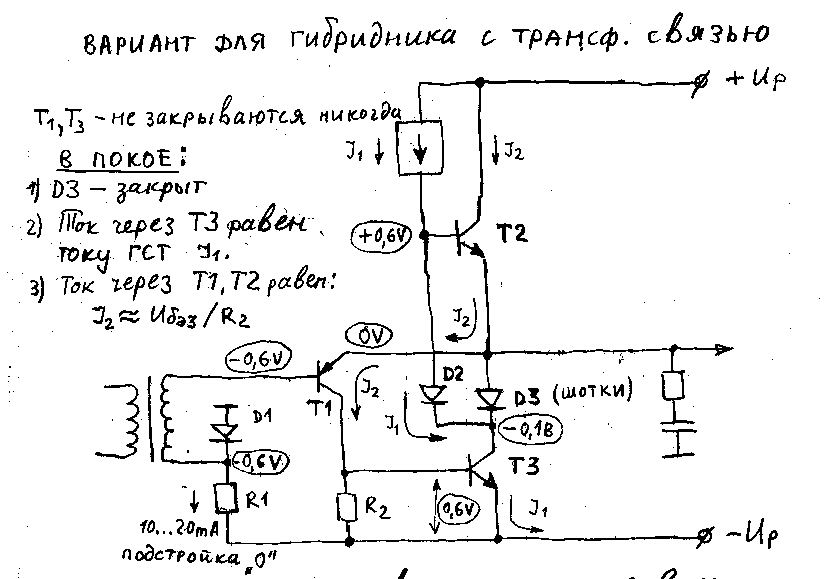 ВАРИАНТ ДЛЯ ГИБРИДНИКА С ТРАНСФ. СВЯЗЬЮ
+Up
T1,T3 - НЕ ЗАКРЫВАЮТСЯ НИКОГДА
J1
J2
В ПОКОЕ:
1) D3 — ЗАКРЫТ
2) ТОК ЧЕРЕЗ T3 РАВЕН
ТОКУ ГСТ J1.
+0,6V
T2
3) ТОК ЧЕРЕЗ T1,T2 РАВЕН:
J2 ≈ Uбэ3/R2
J2
0V
-0,6V
T1
J2
D2
D3 (ШОТКИ)
D1
J1
-0,1В
-0,6V
T3
R1
R2
0,6V
J1
10...20mA
ПОДСТРОЙКА "0"
-Up